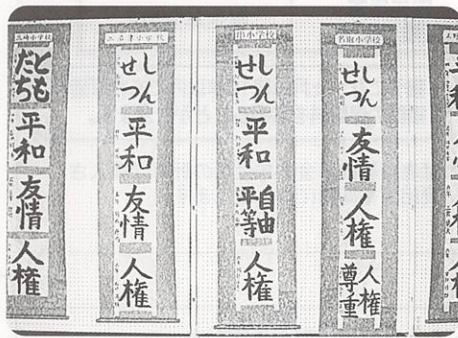 三崎小学校
とも
だち
平和
友情
人権
二名津小学校
しん
せつ
平和
友情
人権
串小学校
しん
せつ
平和
自由
平等
人権
名取小学校
しん
せつ
友情
人権
人権
尊重